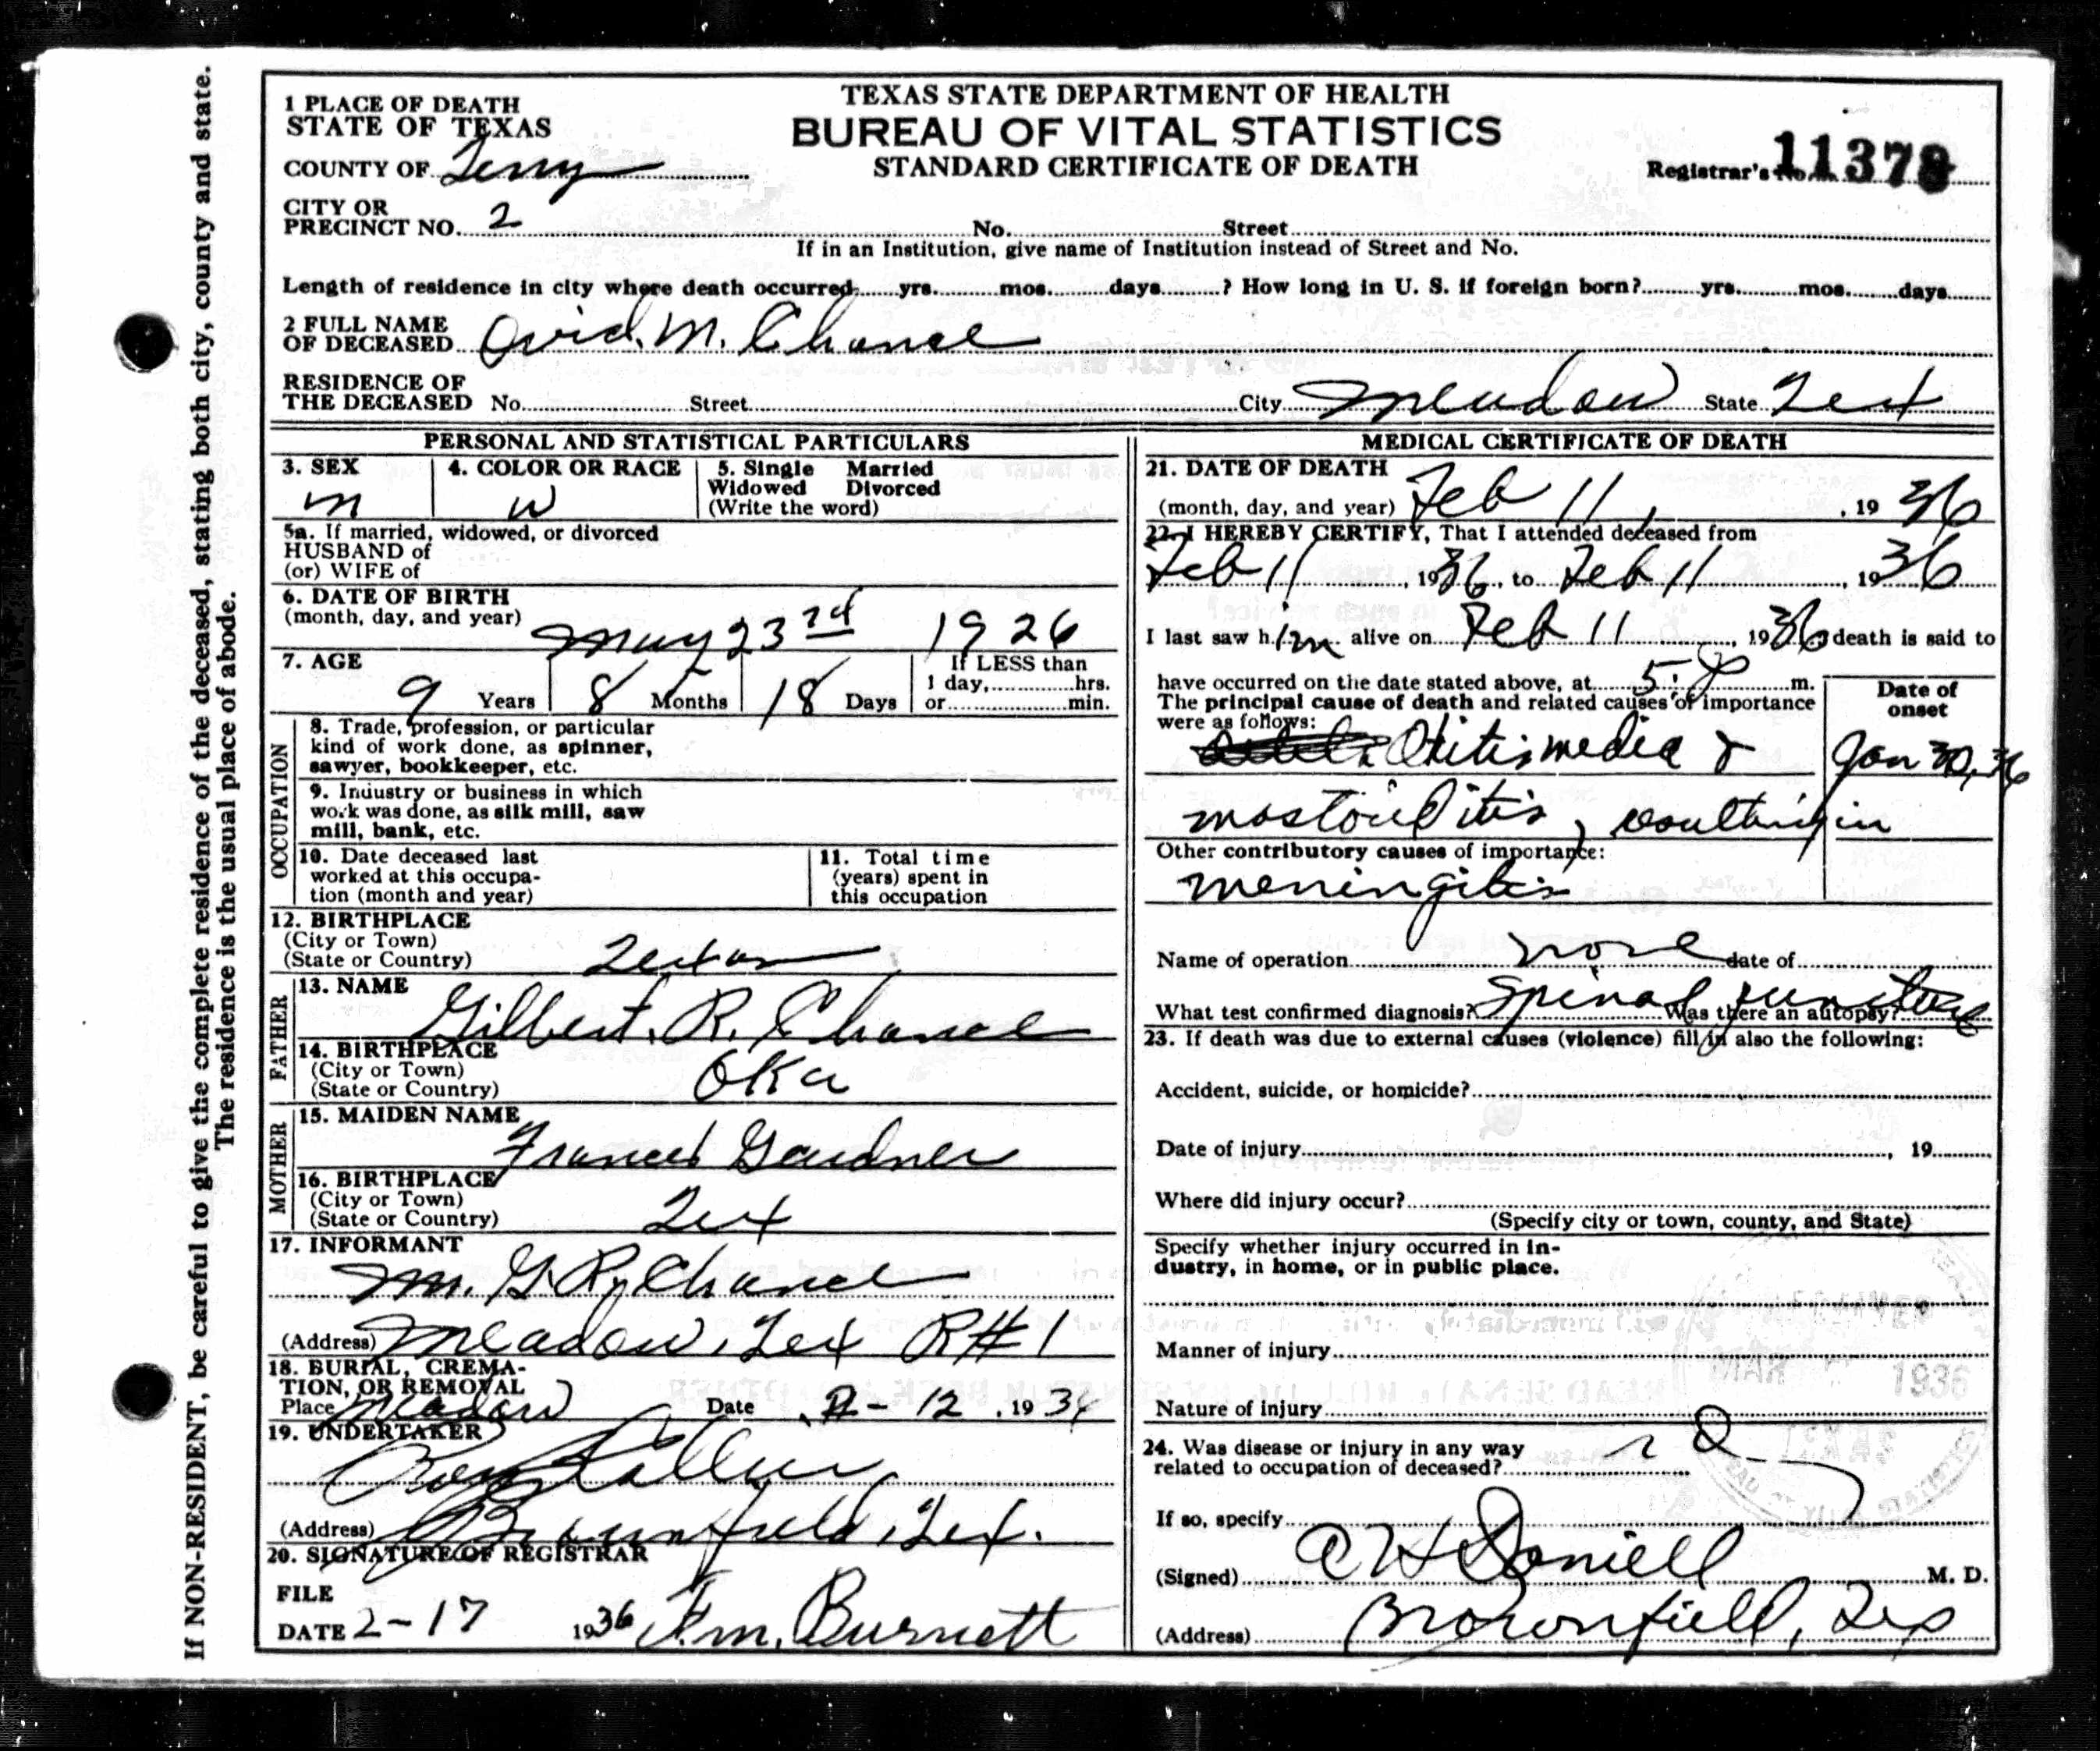 If NON-RESIDENT, be careful to give the complete residence of the deceased, stating both city, county and state.
The residence is the usual place of abode.
TEXAS STATE DEPARTMENT OF HEALTH
BUREAU OF VITAL STATISTICS
STANDARD CERTIFICATE OF DEATH
1 PLACE OF DEATH
STATE OF TEXAS
COUNTY OF Terry
Registrar's No. 11378
CITY OR
PRECINCT NO. 2 No. Street
If in an Institution, give name of Institution instead of Street and No.
Length of residence in city where death occurred yrs. mos. days ? How long in U. S. if foreign born? yrs. mos. days
2 FULL NAME
OF DECEASED Ovid. M. Chance
RESIDENCE OF
THE DECEASED No. Street City Meadow State Tex
PERSONAL AND STATISTICAL PARTICULARS
3. SEX
m
4. COLOR OR RACE
w
5. Single Married
Widowed Divorced
(Write the word)
5a. If married, widowed, or divorced
HUSBAND of
(or) WIFE of
6. DATE OF BIRTH
(month, day, and year) May 23rd 1926
7. AGE
9 Years 8 Months 18 Days
If LESS than
1 day, hrs.
or min.
OCCUPATION
8. Trade, profession, or particular
kind of work done, as spinner,
sawyer, bookkeeper, etc.
9. Industry or business in which
work was done, as silk mill, saw
mill, bank, etc.
10. Date deceased last
worked at this occupa-
tion (month and year)
11. Total time
(years) spent in
this occupation
12. BIRTHPLACE
(City or Town)
(State or Country) Texas
FATHER
13. NAME
Gilbert. R. Chance
14. BIRTHPLACE
(City or Town)
(State or Country) Oka
MOTHER
15. MAIDEN NAME
Frances Gardner
16. BIRTHPLACE
(City or Town)
(State or Country) Tex
17. INFORMANT
M. G. R. Chance
(Address) Meadow, Tex R#1
18. BURIAL, CREMA-
TION, OR REMOVAL
Place Meadow Date 2-12, 1936
19. UNDERTAKER
(Address) Brownfield, Tex.
20. SIGNATURE OF REGISTRAR
FILE
DATE 2-17 1936 F.m. Burnett
MEDICAL CERTIFICATE OF DEATH
21. DATE OF DEATH
(month, day, and year) Feb 11, 1936
22. I HEREBY CERTIFY, That I attended deceased from
Feb 11, 1936, to Feb 11, 1936
I last saw him alive on Feb 11, 1936 death is said to
have occurred on the date stated above, at 5:P m.
The principal cause of death and related causes of importance
were as follows:
Date of
onset
Otitis media & Jan 30, 36
mastoiditis, resulting in
Other contributory causes of importance:
meningitis
Name of operation none date of
What test confirmed diagnosis? Spinal puncture Was there an autopsy?
23. If death was due to external causes (violence) fill in also the following:
Accident, suicide, or homicide?
Date of injury , 19
Where did injury occur?
(Specify city or town, county, and State)
Specify whether injury occurred in in-
dustry, in home, or in public place.
Manner of injury
Nature of injury
24. Was disease or injury in any way
related to occupation of deceased? no
If so, specify
(Signed) Daniell M. D.
(Address) Brownfield, Tex